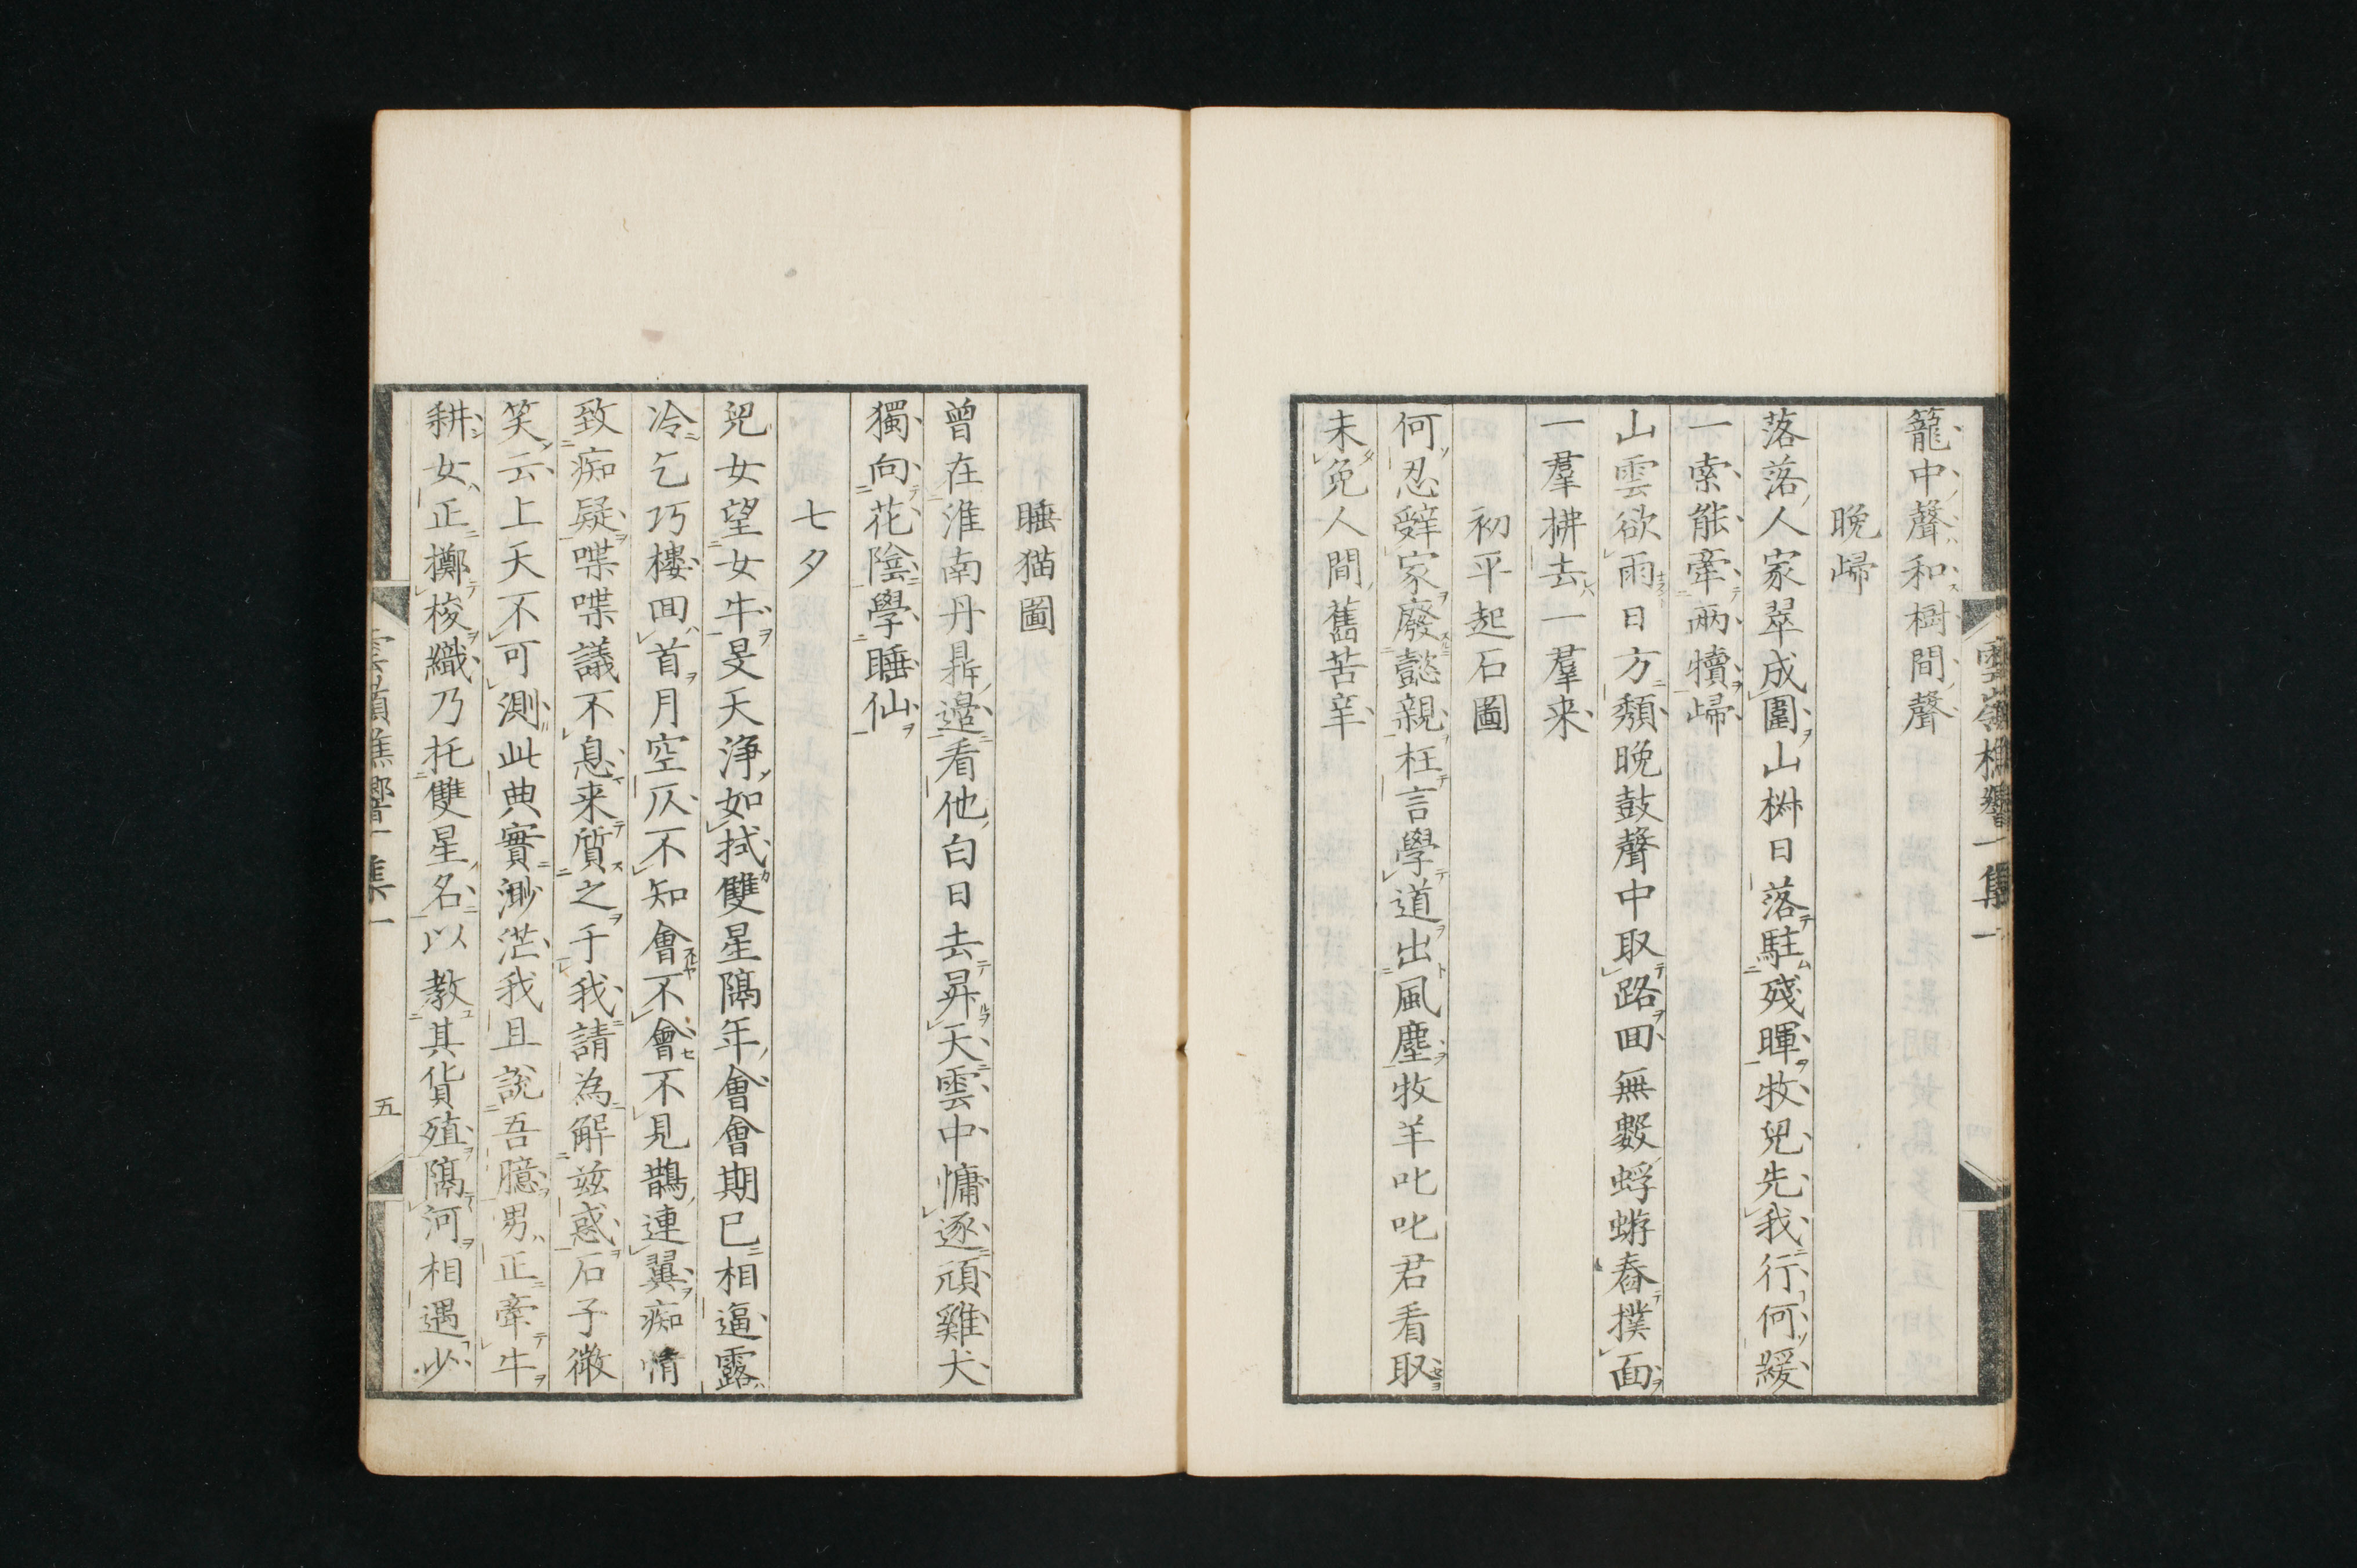 籠中聲和樹間聲
晚歸
落落人家翠成圍山樹日落駐殘暉牧兒先我行何緩
一索能牽兩犢歸
山雲欲雨日方頽晚鼓聲中取路回無數蜉蝣舂撲面
一羣拂去一羣来
初平起石圖
何忍辭家廢懿親枉言學道出風塵牧羊叱叱君看取
未免人間舊苦辛
睡猫圖
曾在淮南丹鼎邉看他白日去昇天雲中慵逐頑雞犬
獨向花陰學睡仙
七夕
兒女望女牛旻天浄如拭雙星隔年會會期已相逼露
冷乞巧樓回首月空仄不知會不會不見鵲連翼痴情
致痴疑喋喋議不息来質之于我請為解兹惑石子微
笑云上天不可測此典實渺茫我且説吾臆男正牽牛
耕女正擲梭織乃托雙星名以教其貨殖隔河相遇少
五